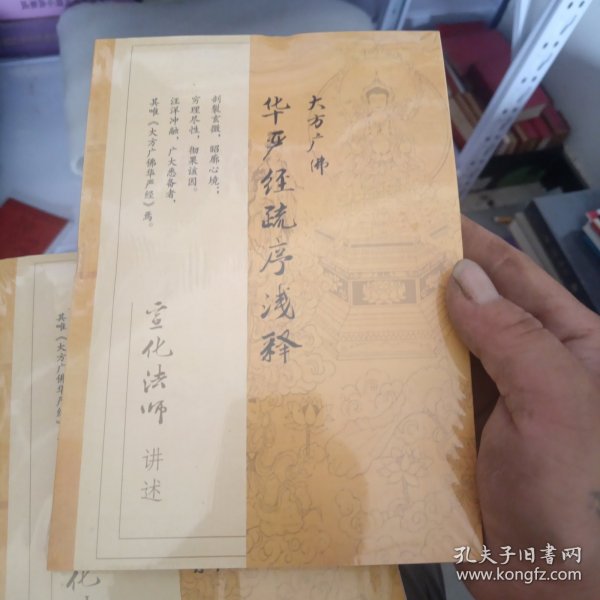 大方广佛
华严经疏序浅释
剖裂玄微，昭廓心境；
穷理尽性，彻果该因。
汪洋冲融，广大悉备者，
其唯《大方广佛华严经》焉。
宣化法师 讲述
其唯《大方广佛华严经
化
孔夫子旧书网
www.kongfz.com